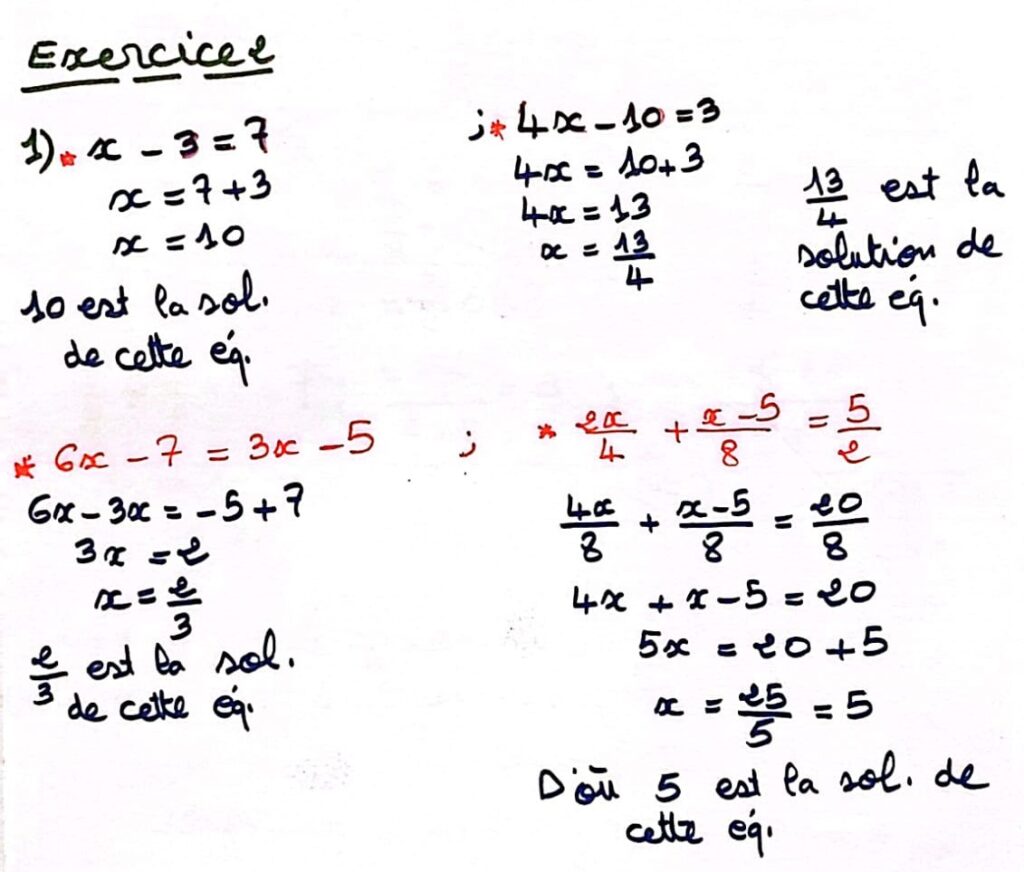 Exercice 2
1) * x - 3 = 7
x = 7 + 3
x = 10
10 est la sol.
de cette éq.
; * 4x - 10 = 3
4x = 10 + 3
4x = 13
x = 13/4
13/4 est la
solution de
cette éq.
* 6x - 7 = 3x - 5 ;
6x - 3x = -5 + 7
3x = 2
x = 2/3
2/3 est la sol.
de cette éq.
* 2x/4 + x-5/8 = 5/2
4x/8 + x-5/8 = 20/8
4x + x - 5 = 20
5x = 20 + 5
x = 25/5 = 5
D'où 5 est la sol. de
cette éq.